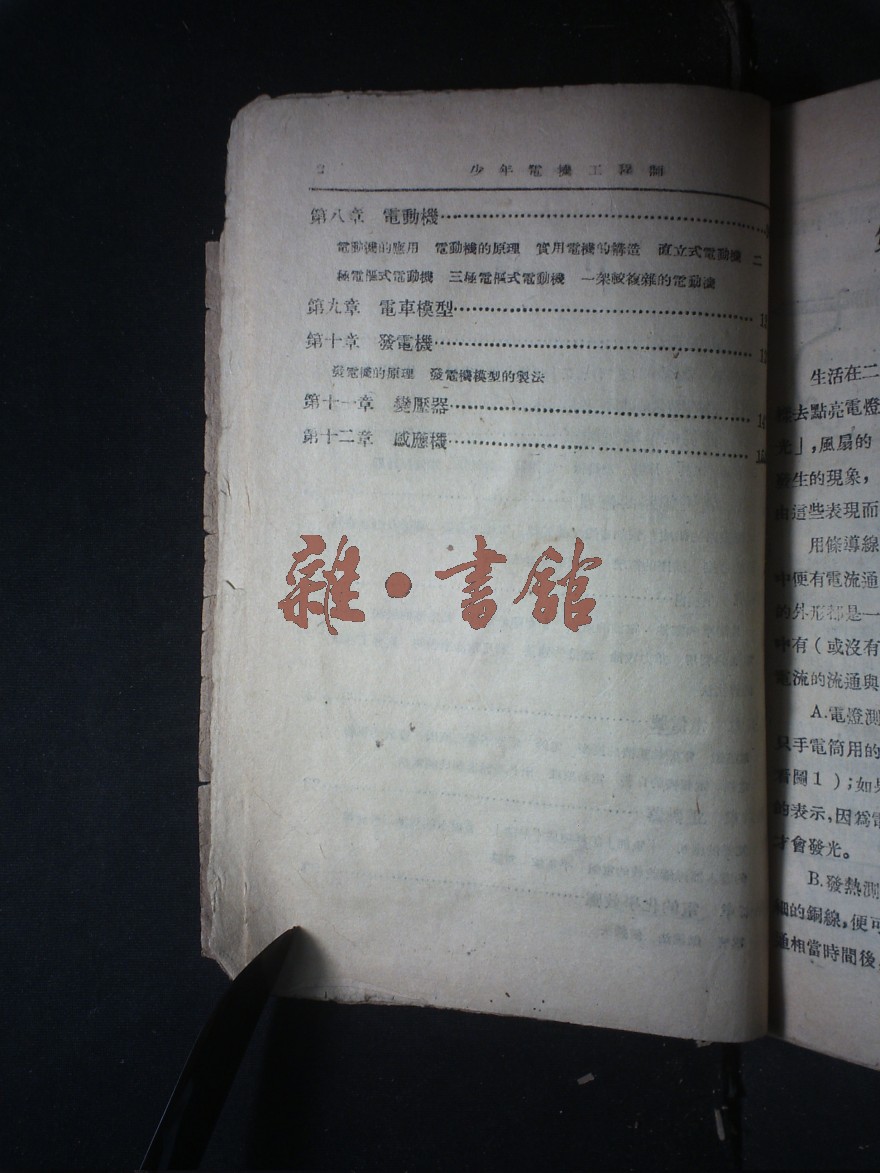 2 少年電機工程師
第八章 電動機
電動機的應用 電動機的原理 實用電機的構造 直立式電動機 二
極電樞式電動機 三極電樞式電動機 一架較複雜的電動機
第九章 電車模型
第十章 發電機
發電機的原理 發電機模型的製法
第十一章 變壓器
第十二章 感應機
雜·書館
生活在二
去點亮電燈
光」,風扇的
生的現象,
由這些表現而
用條導線
中便有電流通
的外形都是一
中有(或沒有
電流的流通與
A.電燈測
只手電筒用的
看圖1);如果
的表示,因爲電
才會發光。
B.發熱測
細的銅線,便可
通相當時間後,